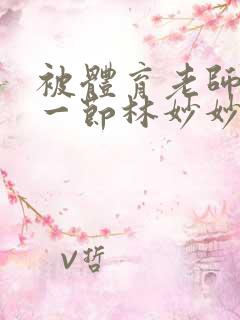 被體育老師
一節林妙妙
V哲